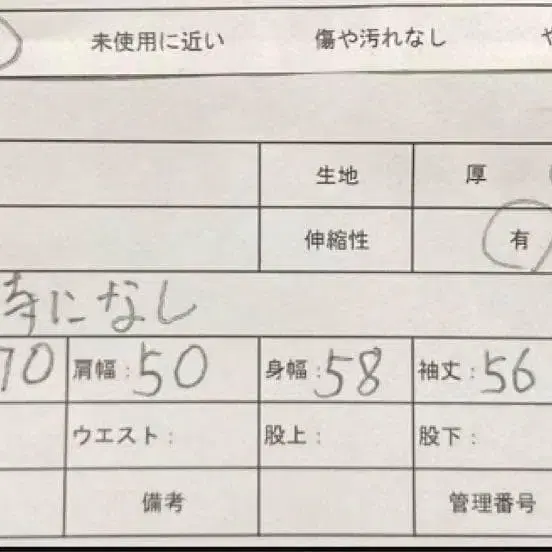 未使用に近い 傷や汚れなし
生地 厚
伸縮性 有
特になし
70 肩幅：50 身幅：58 袖丈：56
ウエスト： 股上： 股下：
備考 管理番号